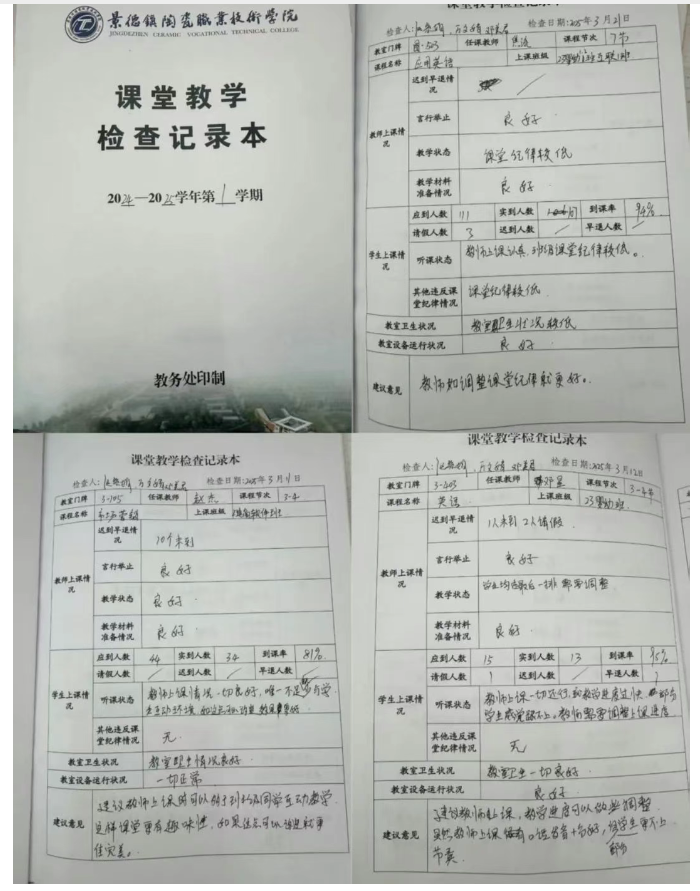 景德镇陶瓷职业技术学院
JINGDEZHEN CERAMIC VOCATIONAL TECHNICAL COLLEGE
课堂教学
检查记录本
2024—2025学年第1学期
教务处印制
课堂教学检查记录本
检查人: 检查日期:2025年3月21日
教室门牌 任课教师 课程节次 7节
课程名称 应用英语 上课班级
教师上课情况
迟到早退情况 /
言行举止 良好
教学状态 课堂纪律较低
教学材料准备情况 良好
学生上课情况
应到人数 111 实到人数 到课率 94%
请假人数 3 迟到人数 / 早退人数 /
听课状态 教师上课认真,班级课堂纪律较低。
其他违反课堂纪律情况 课堂纪律较低
教室卫生状况 教室卫生状况较低
教室设备运行状况 良好
建议意见 教师如调整课堂纪律就更好。
课堂教学检查记录本
检查人: 检查日期:2025年3月11日
教室门牌 3-105 任课教师 赵杰 课程节次 3-4
课程名称 上课班级
教师上课情况
迟到早退情况 10个未到
言行举止 良好
教学状态 良好
教学材料准备情况 良好
学生上课情况
应到人数 44 实到人数 34 到课率 81%
请假人数 / 迟到人数 / 早退人数 /
听课状态 教师上课情况一切良好,唯一不足与学
生互动环境
其他违反课堂纪律情况 无
教室卫生状况 教室卫生情况良好
教室设备运行状况 一切正常
建议意见 建议教师上课时可以做到班级同学互动教学
这样课堂更有趣味性。如果这点可以改进就更
佳完美。
课堂教学检查记录本
检查人: 检查日期:2025年3月12日
教室门牌 3-403 任课教师 课程节次 3-4节
课程名称 英语 上课班级
教师上课情况
迟到早退情况 1人未到 2人请假
言行举止 良好
教学状态 学生均坐最后一排 需要调整
教学材料准备情况 良好
学生上课情况
应到人数 15 实到人数 13 到课率 95%
请假人数 1 迟到人数 / 早退人数
听课状态 教师上课一切还行,到教学进度过快 部分
学生感觉跟不上。教师需要调整上课进度
其他违反课堂纪律情况 无
教室卫生状况 教室卫生一切良好
教室设备运行状况 良好
建议意见 建议教师在上课,教学进度可以做些调整
虽然教师上课 学生更不上
节奏